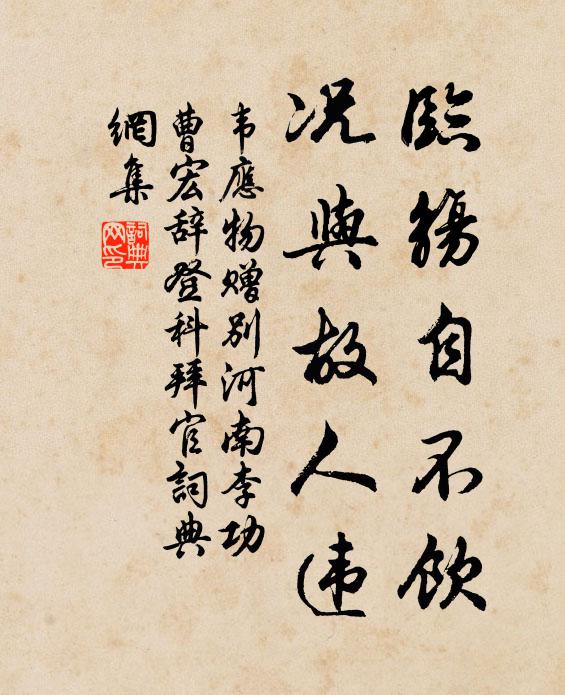 臨觴自不飲
况與故人违
韦應物赠别河南李功
曹宏辞登科拜官詞典
網集
詞典
网印